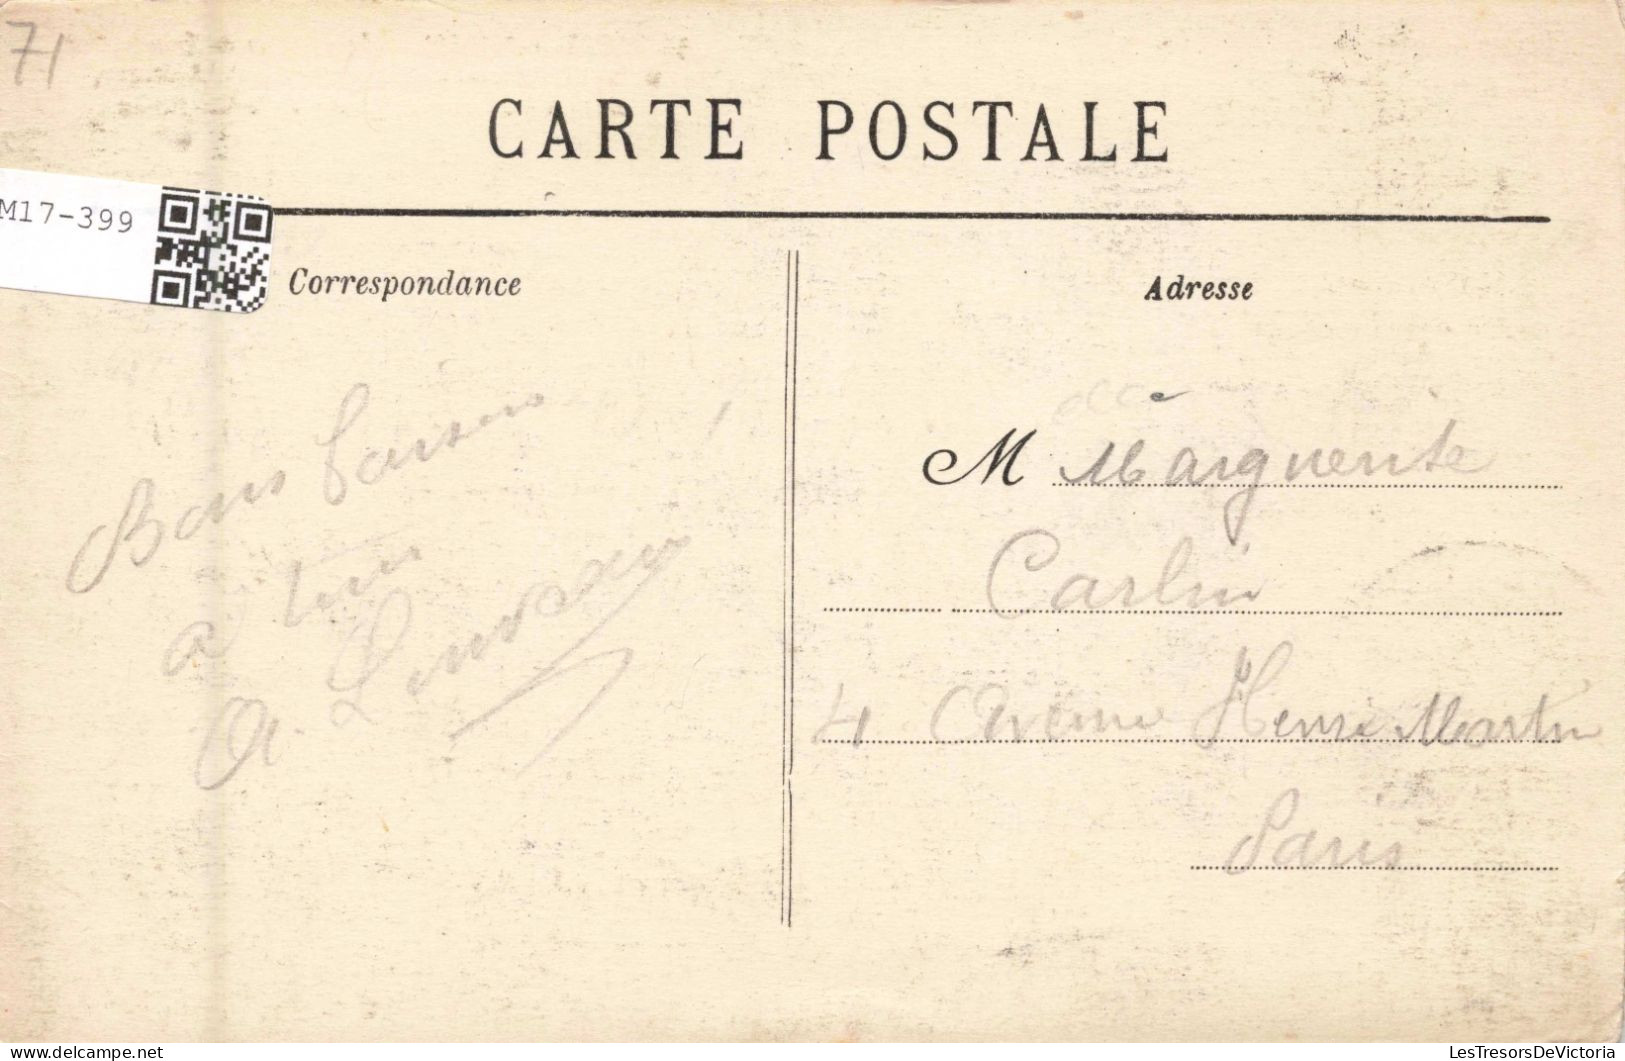 71
CARTE POSTALE
M17-399
Correspondance
Adresse
Bons baisers
a tous
A.
M Marguerite
Carlin
4 Avenue Henri Martin
Paris
LesTresorsDeVictoria